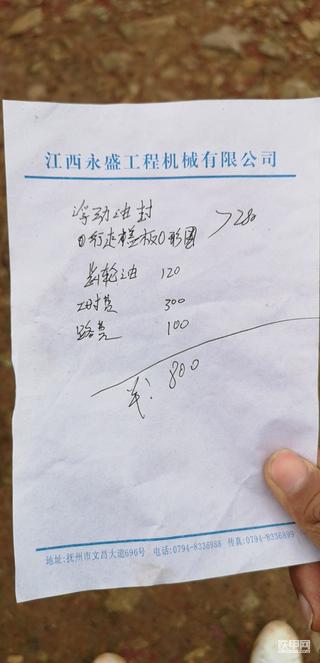 江西永盛工程机械有限公司
浮动油封
行走盖板O形圈 >280
齿轮油 120
工时费 300
路费 100
共: 800
地址:抚州市文昌大道696号 电话:0794-8336988 传真:0794-8336899
铁甲网